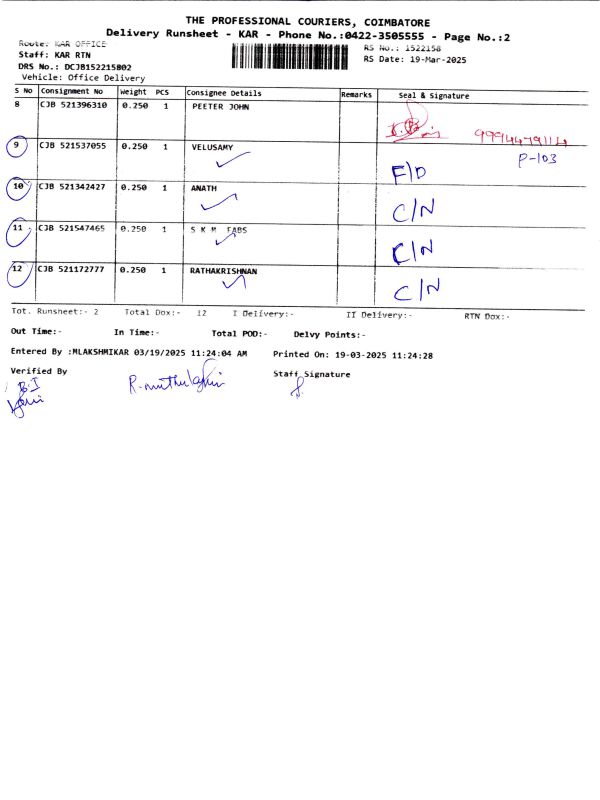 THE PROFESSIONAL COURIERS, COIMBATORE
Delivery Runsheet - KAR - Phone No.:0422-3505555 - Page No.:2
Route: KAR OFFICE
RS No.: 1522158
Staff: KAR RTN
RS Date: 19-Mar-2025
DRS No.: DCJB152215802
Vehicle: Office Delivery
S No Consignment No Weight PCS Consignee Details Remarks Seal & Signature
8 CJB 521396310 0.250 1 PEETER JOHN
9 CJB 521537055 0.250 1 VELUSAMY P-103
F/D
10 CJB 521342427 0.250 1 ANATH
C/N
11 CJB 521547465 0.250 1 S K M FABS
C/N
12 CJB 521172777 0.250 1 RATHAKRISHNAN
C/N
Tot. Runsheet:- 2 Total Dox:- 12 I Delivery:- II Delivery:- RTN Dox:-
Out Time:- In Time:- Total POD:- Delvy Points:-
Entered By :MLAKSHMIKAR 03/19/2025 11:24:04 AM Printed On: 19-03-2025 11:24:28
Verified By Staff Signature